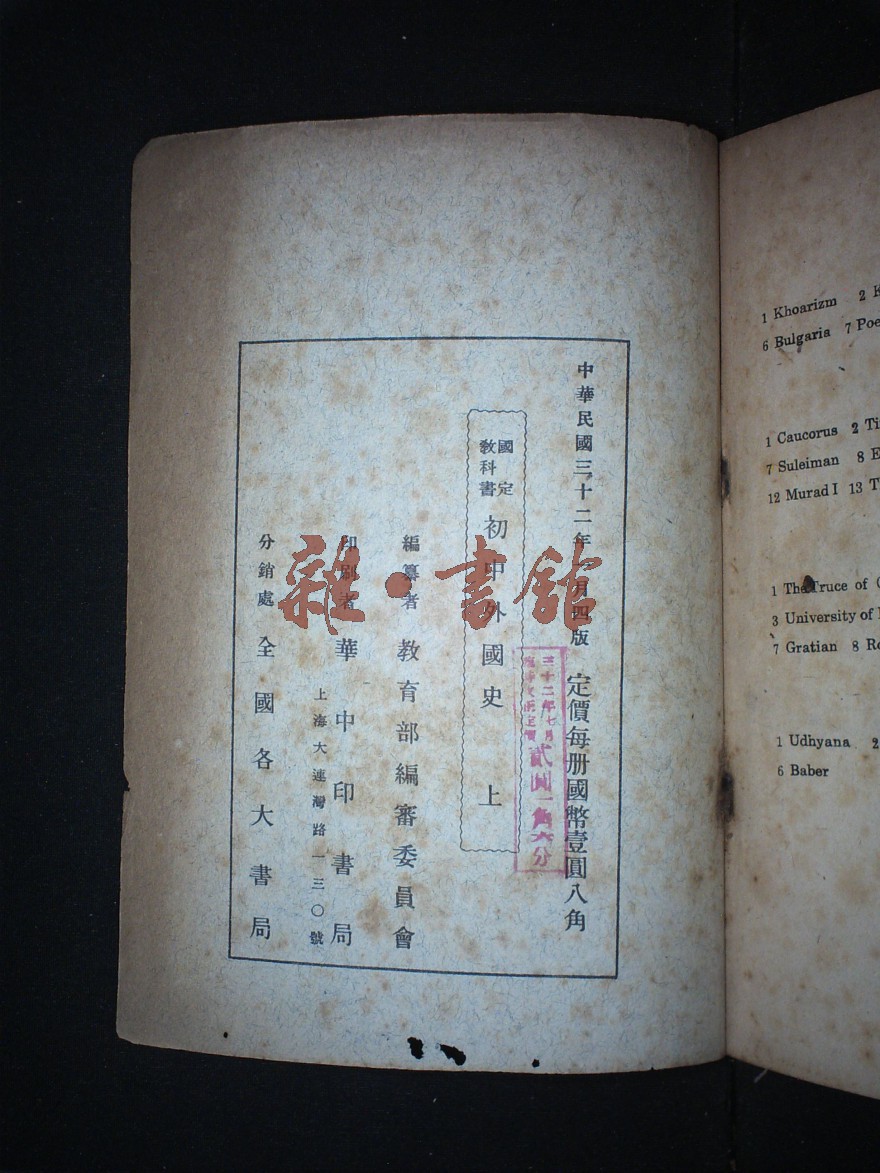 中華民國三十二年　月四版　定價每册國幣壹圓八角
三十二年七月
貳圓一角六分
國定
教科書
初中外國史　上
編纂者　教育部編審委員會
印刷者　華中印書局
上海大連灣路一三〇號
分銷處　全國各大書局
雜·書館
1 Khoarizm 2
6 Bulgaria 7
1 Caucorus 2
7 Suleiman 8
12 Murad I 13
1 The Truce of
3 University of
7 Gratian 8
1 Udhyana 2
6 Baber